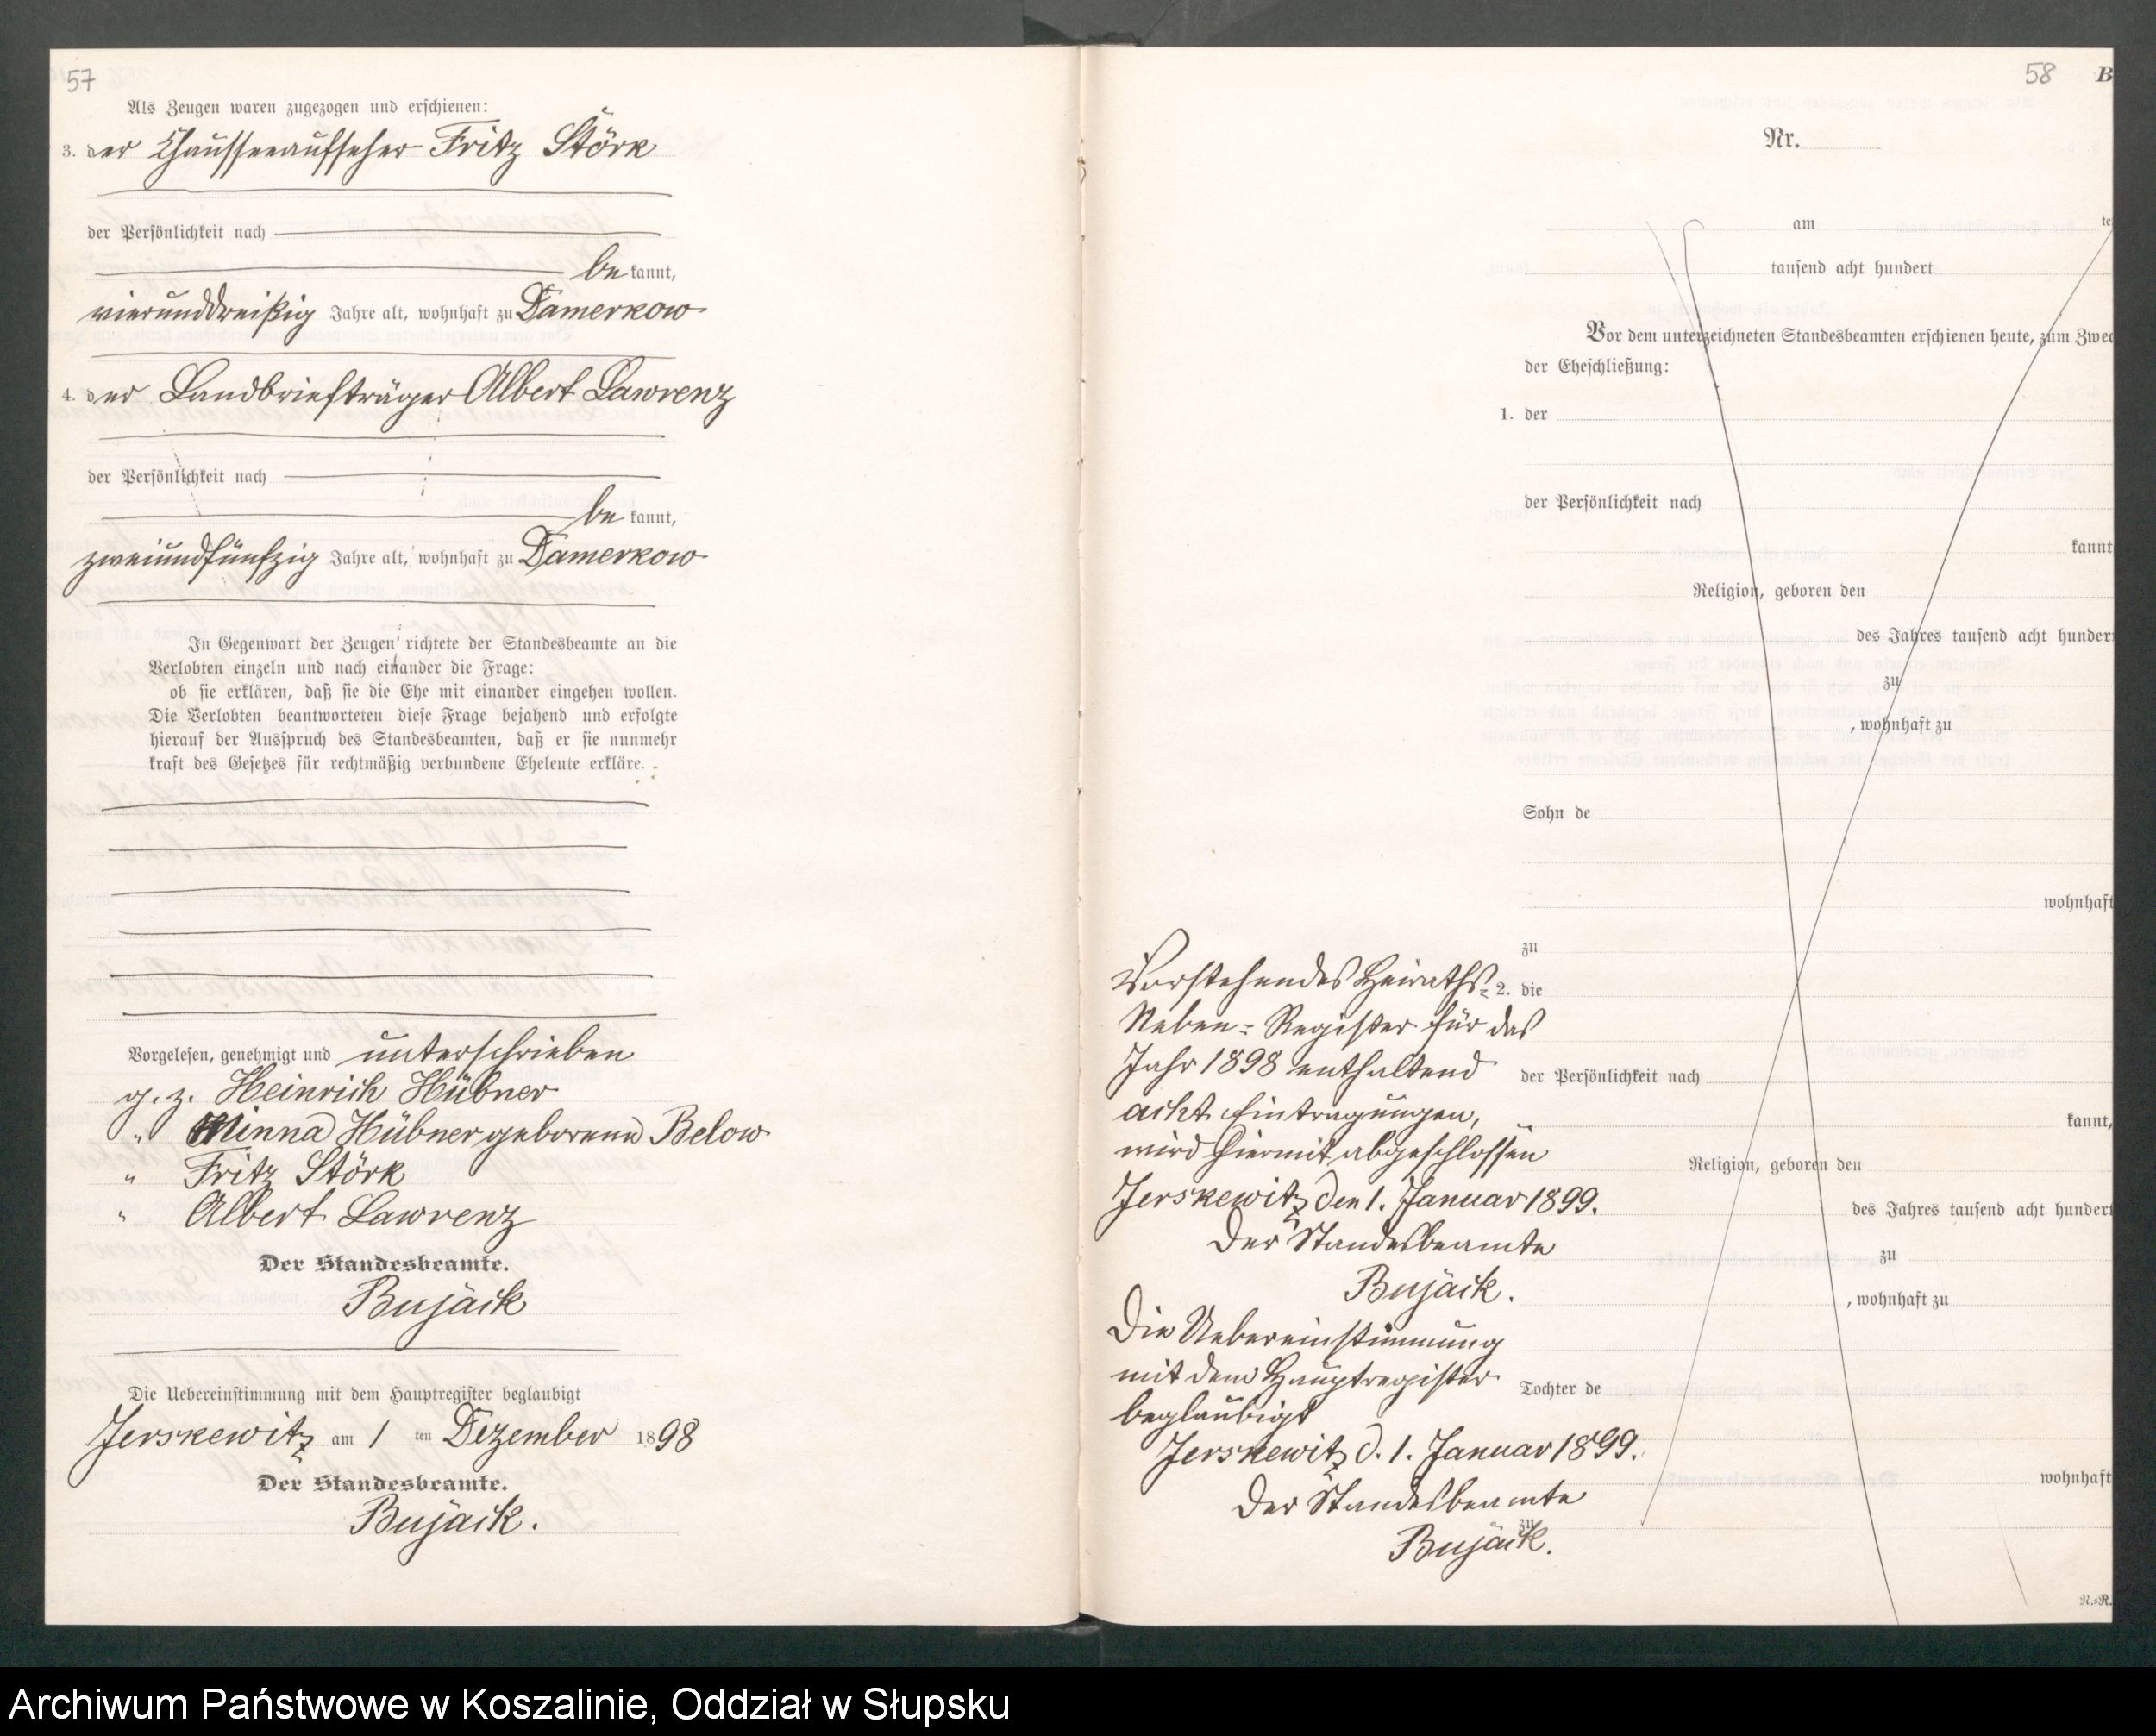 57
Als Zeugen waren zugezogen und erschienen:
3. der Chausseeaufseher Fritz Störk
der Persönlichkeit nach
be kannt,
vierunddreißig Jahre alt, wohnhaft zu Damerkow
4. der Landbriefträger Albert Lawrenz
der Persönlichkeit nach
be kannt,
zweiundfünfzig Jahre alt, wohnhaft zu Damerkow
In Gegenwart der Zeugen richtete der Standesbeamte an die
Verlobten einzeln und nach einander die Frage:
ob sie erklären, daß sie die Ehe mit einander eingehen wollen.
Die Verlobten beantworteten diese Frage bejahend und erfolgte
hierauf der Ausspruch des Standesbeamten, daß er sie nunmehr
kraft des Gesetzes für rechtmäßig verbundene Eheleute erkläre.
Vorgelesen, genehmigt und unterschrieben
g. z. Heinrich Hübner
" Minna Hübner geborene Below
" Fritz Störk
" Albert Lawrenz
Der Standesbeamte.
Bujack
Die Uebereinstimmung mit dem Hauptregister beglaubigt
Jerskewitz am 1 ten Dezember 1898
Der Standesbeamte.
Bujack.
58 B
Nr.
am te
tausend acht hundert
Vor dem unterzeichneten Standesbeamten erschienen heute, zum Zwec
der Eheschließung:
1. der
der Persönlichkeit nach
kannt
Religion, geboren den
des Jahres tausend acht hunder
zu
, wohnhaft zu
Sohn de
wohnhaft
zu
2. die
der Persönlichkeit nach
kannt,
Religion, geboren den
des Jahres tausend acht hundert
zu
, wohnhaft zu
Tochter de
wohnhaft
zu
N.=R.
Vorstehendes Heiraths=
Neben=Register für das
Jahr 1898 enthaltend
acht Eintragungen,
wird hiermit abgeschlossen
Jerskewitz den 1. Januar 1899.
Der Standesbeamte
Bujack.
Die Uebereinstimmung
mit dem Hauptregister
beglaubigt
Jerskewitz d. 1. Januar 1899.
Der Standesbeamte
Bujack.
Archiwum Państwowe w Koszalinie, Oddział w Słupsku